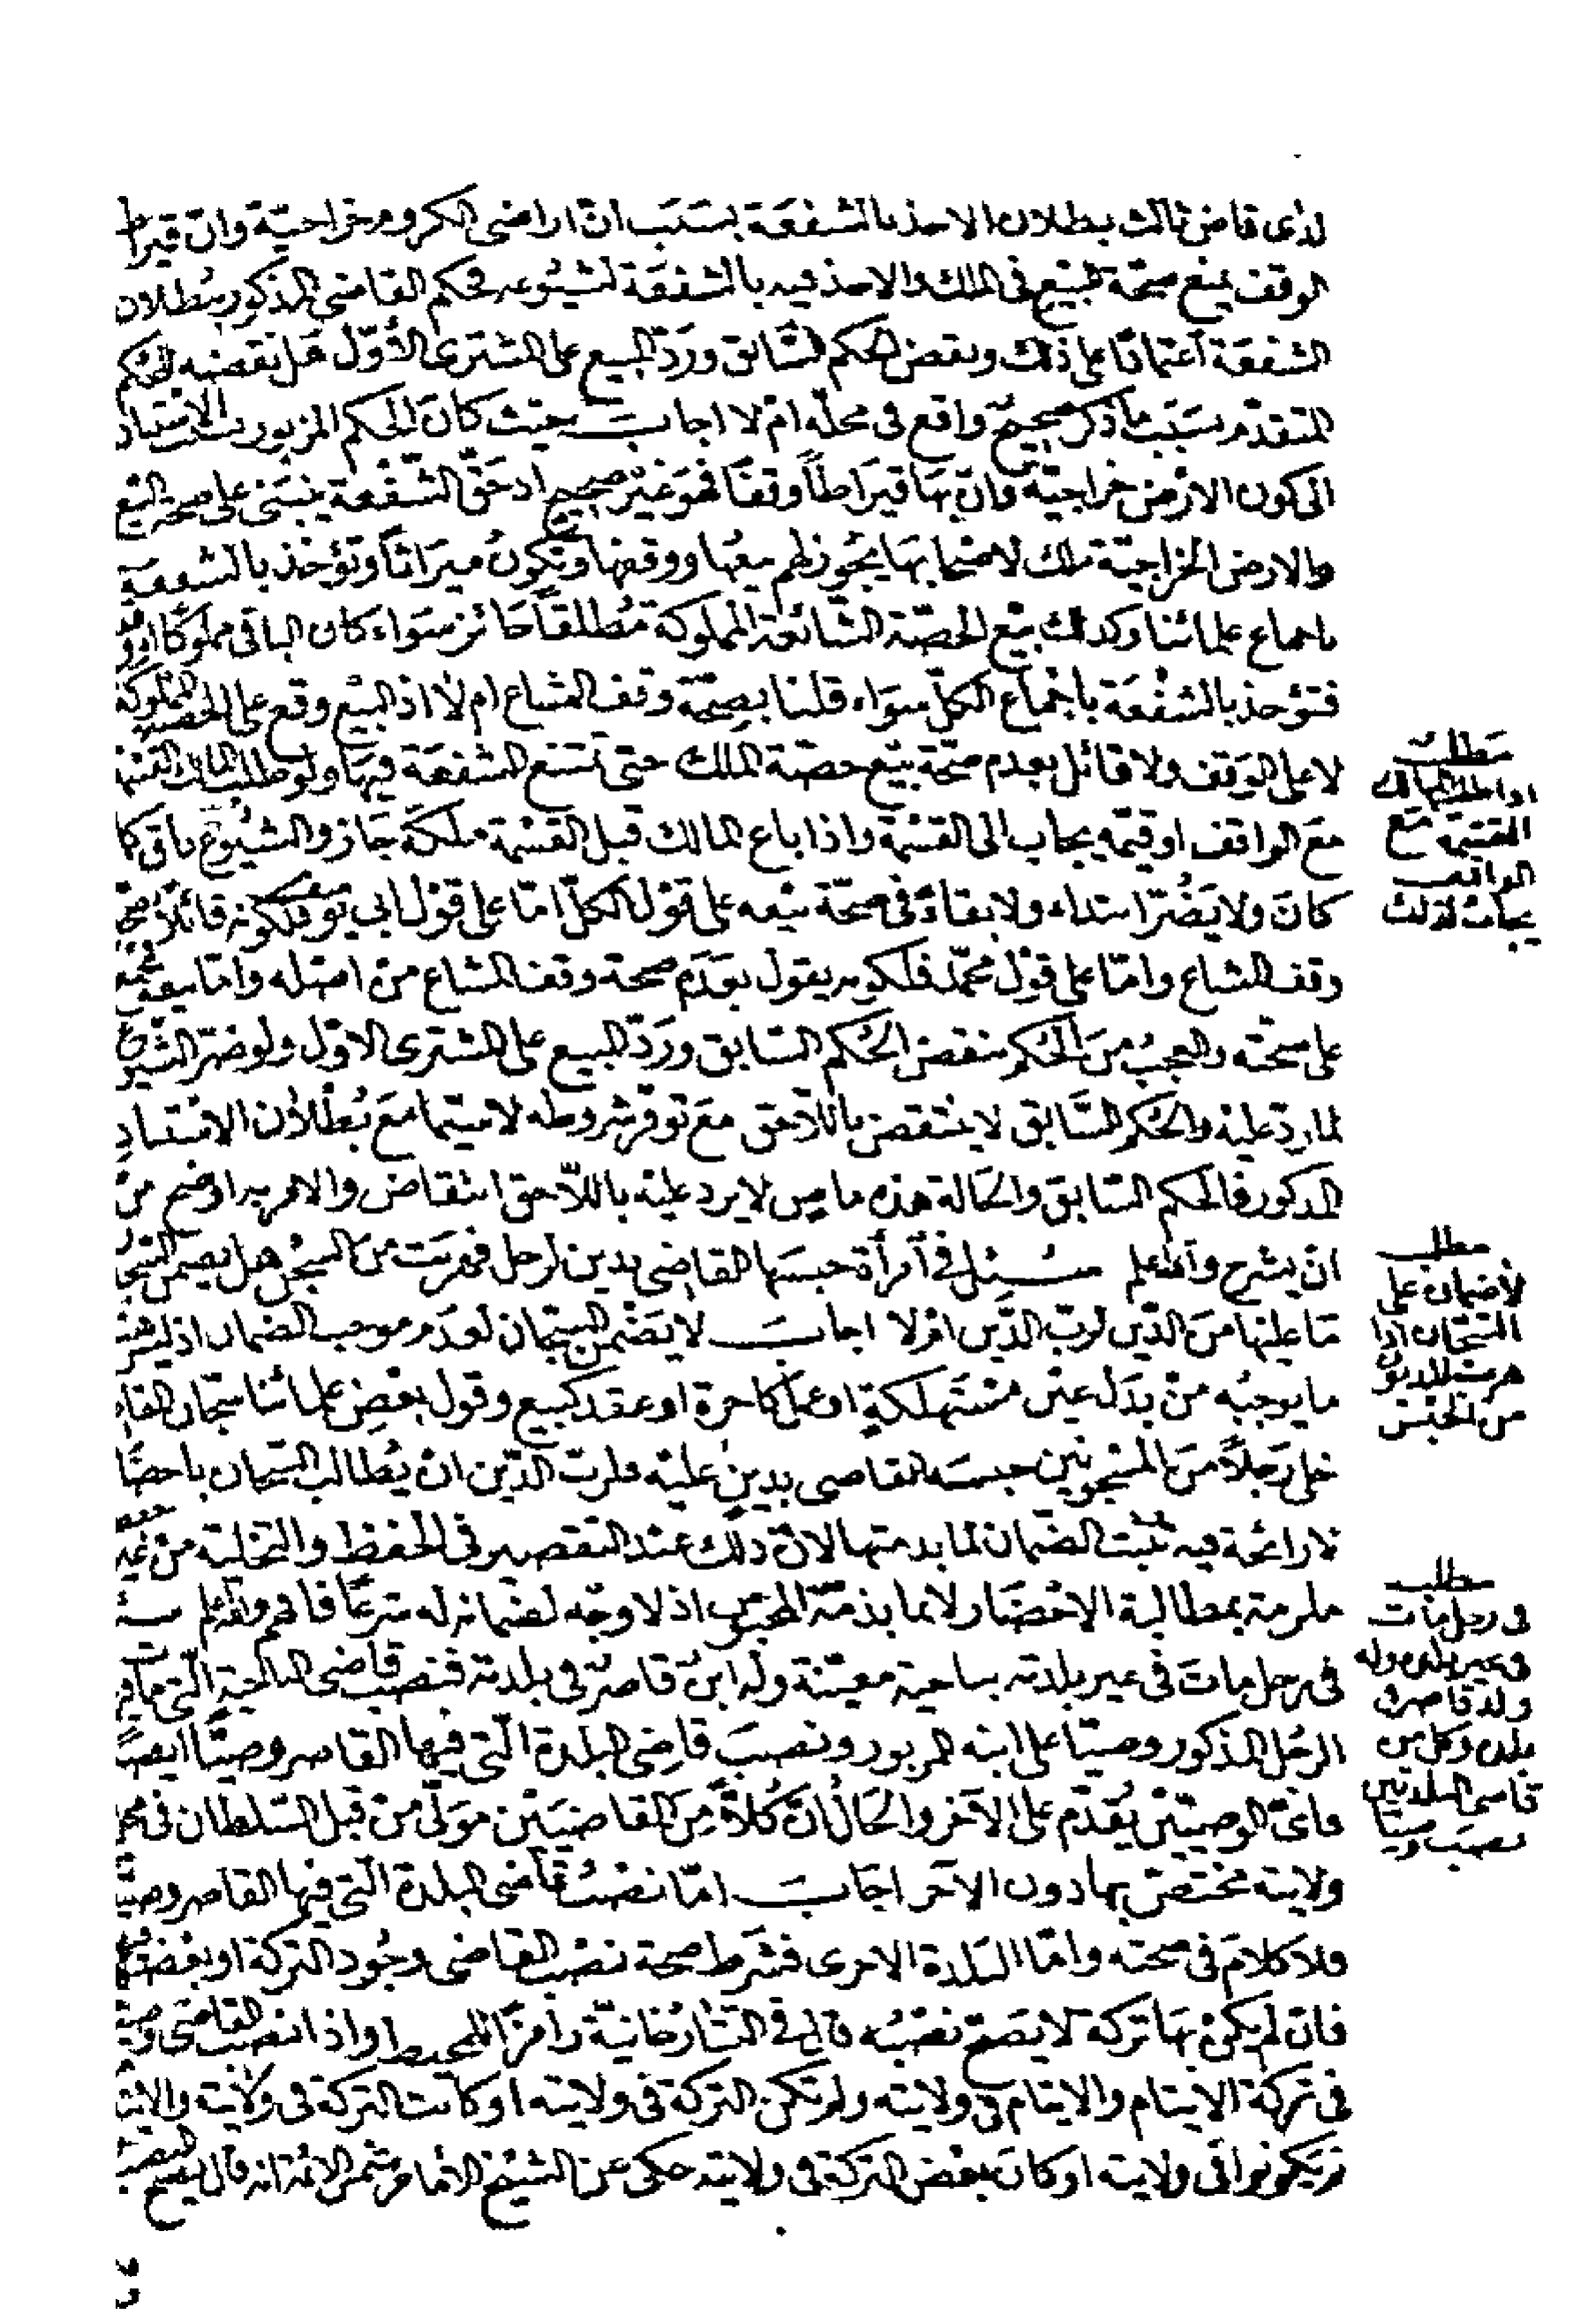 لدى قاض ثالث بطلان الاخذ بالشفعة بسبب ان اراضى الكروم خراجية وان قيراط
الوقف يمنع صحة المبيع فى الملك والاخذ فيه بالشفعة لشيوعه فحكم القاضى المذكور ببطلان
الشفعة اعتمادا على ذلك ونقض الحكم السابق ورد المبيع على المشترى الأول هل نقضه للحكم
المتقدم بسبب ما ذكر صحيح واقع فى محله ام لا اجاب حيث كان الحكم المزبور الاستناد
الى كون الارض خراجية وان بها قيراطا وقفا فهو غير صحيح اذ حق الشفعة ينبنى على صحة البيع
والارض الخراجية ملك لاصحابها يجوز لهم بيعها ووقفها وتكون ميراثا وتؤخذ بالشفعة
باجماع علمائنا وكذلك بيع الحصة الشائعة المملوكة مطلقا جائز سواء كان الباقى مملوكا او
فتؤخذ بالشفعة باجماع الكل سواء قلنا بصحة وقف المشاع ام لا اذ البيع وقع على الحصة المملوكة
لا على الوقف ولا قائل بعدم صحة بيع حصة الملك حتى تمتنع الشفعة فيها ولو طلب المالك القسمة
مع الواقف او قيمه يجاب الى القسمة واذا باع المالك قبل القسمة ملكه جاز والشيوع باق كما
كان ولا يضر ابتداء ولا بقاء فى صحة بيعه على قول الكل اما على قول ابى يوسف فلكونه قائلا بصحة
وقف المشاع واما على قول محمد فلكونه يقول بعدم صحة وقف المشاع من اصله واما بيعه
على صحته والعجب من الحكم بنقض الحكم السابق ورد المبيع على المشترى الاول ولو ضر الشيوع
لما رد عليه والحكم السابق لا ينتقض باللاحق مع توفر شروطه لا سيما مع بطلان الاستناد
المذكور فالحكم السابق والحالة هذه ماض لا يرد عليه باللاحق انتقاض والامر بهذا اوضح من
ان يشرح والله اعلم سئل فى امرأة حبسها القاضى بدين لرجل فهربت من السجن هل يضمن السجان
ما عليها من الدين لرب الدين ام لا اجاب لا يضمن السجان لعدم موجب الضمان اذ لم يباشر
ما يوجبه من بدل عين مستهلكة او عمل كاجرة او عقد كبيع وقول بعض علمائنا سجان القاضى
خلى رجلا من المسجونين حبسه القاضى بدين عليه فلرب الدين ان يطالب السجان باحضاره
لا رائحة فيه تثبت الضمان لما بذمتها لان ذلك عند التقصير فى الحفظ والتخلية من غير
ملزمة بمطالبة الاحضار لا بما بذمة المحبوس اذ لا وجه لضمانه له شرعا فافهم والله اعلم سئل
فى رجل مات فى غير بلدته بناحية معينة وله ابن قاصر فى بلدته فنصب قاضى الناحية التى مات فيها
الرجل المذكور وصيا على ابنه المزبور ونصب قاضى البلدة التى فيها القاصر وصيا ايضا
فاى الوصيين يقدم على الآخر والحال ان كلا من القاضيين مولى من قبل السلطان فى محل
ولايته مختص بها دون الآخر اجاب اما نصب قاضى البلدة التى فيها القاصر وصيا
فلا كلام فى صحته واما البلدة الاخرى فشرط صحة نصب القاضى وجود التركة او بعضها
فان لم يكن بها تركة لا يصح نصبه قال فى التتارخانية رامزا للمحيط واذا نصب القاضى وصيا
فى تركة الايتام والايتام فى ولايته ولم تكن التركة فى ولايته او كانت التركة فى ولايته والايتام
لم يكونوا فى ولايته او كان بعض التركة فى ولايته حكى عن الشيخ الامام شمس الائمة انه قال يصح النصب
مطلب
اذا طلب المالك
القسمة مع
الواقف
يجاب لذلك
مطلب
لا ضمان على
السجان اذا
هرب المديون
من الحبس
مطلب
فى رجل مات
فى غير بلده وله
ولد قاصر فى
بلده وكل من
قاضى البلدتين
نصب وصيا